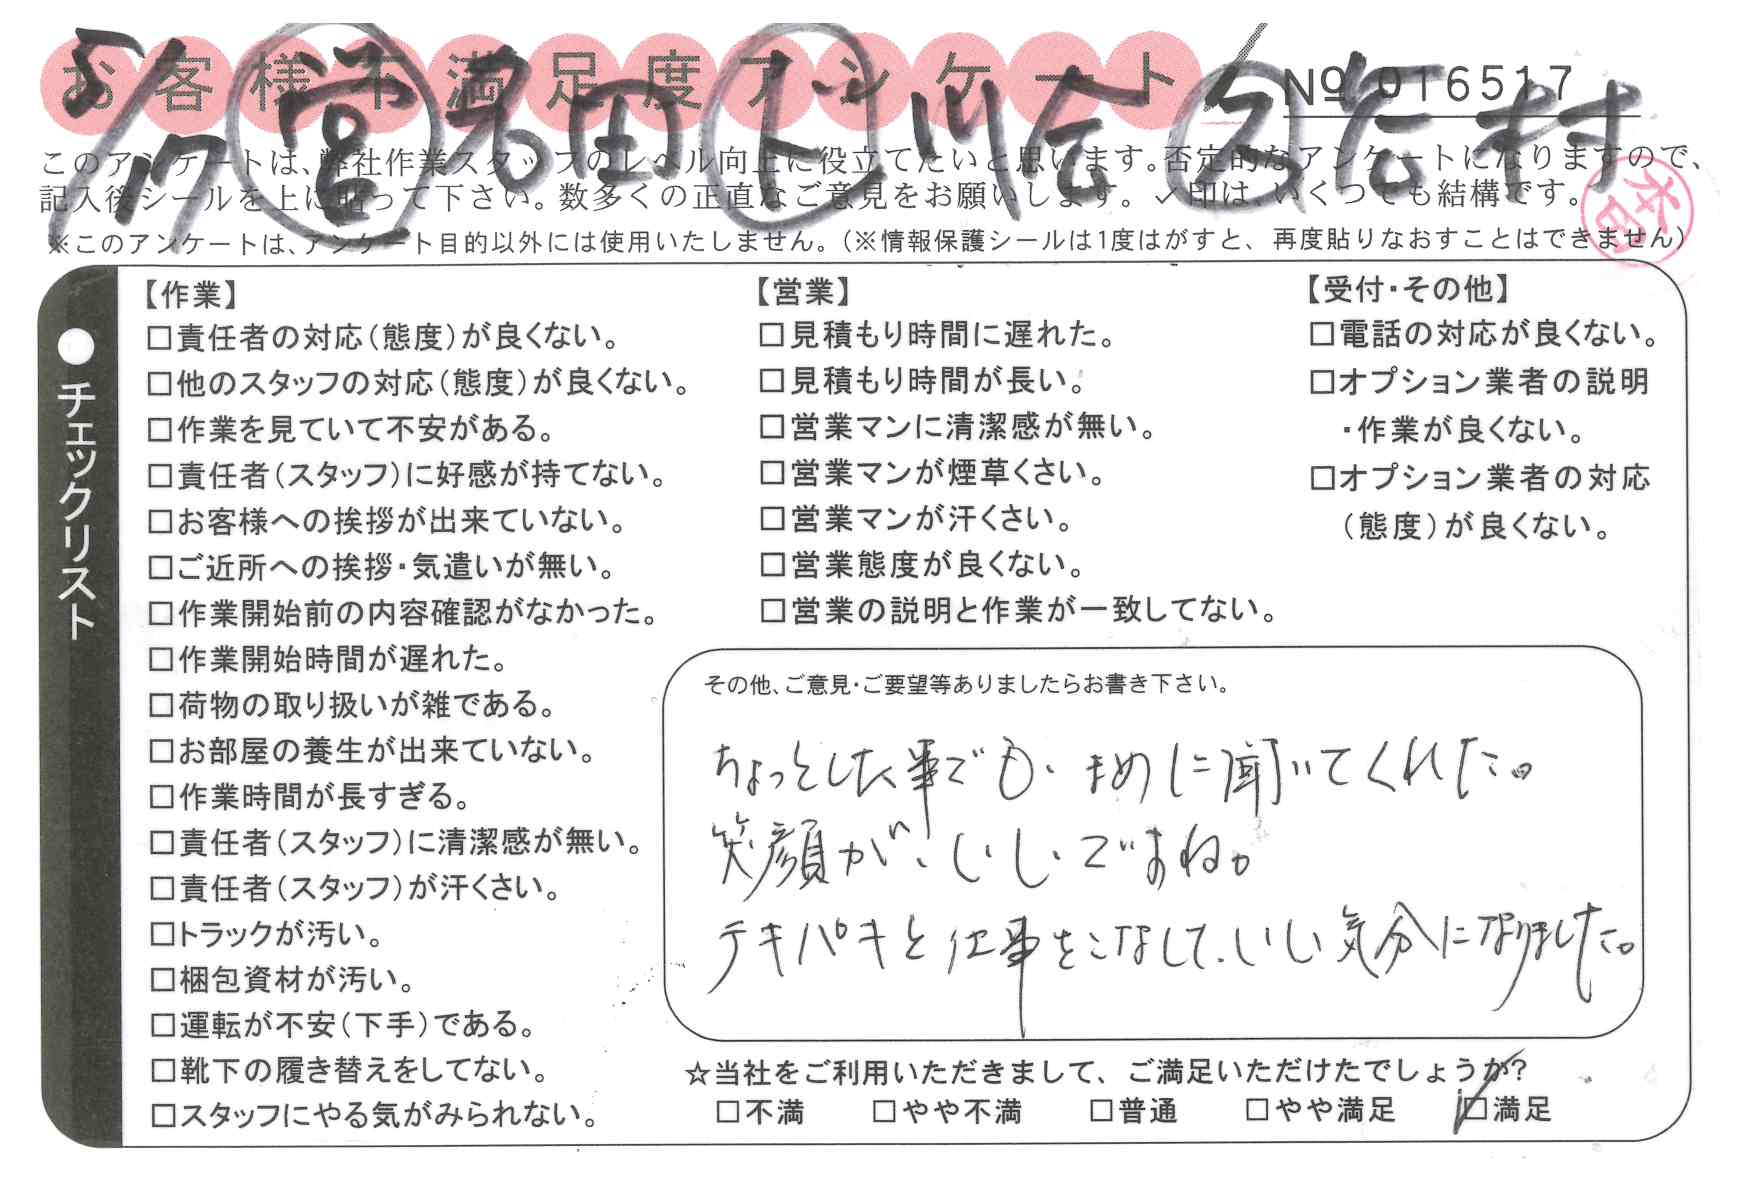 お客様不満足度アンケート
№ 016517
5/17 営 名田 ト 川合 ス 佐村
このアンケートは、弊社作業スタッフのレベル向上に役立てたいと思います。否定的なアンケートになりますので、
記入後シールを上に貼って下さい。数多くの正直なご意見をお願いします。✓印は、いくつでも結構です。
※このアンケートは、アンケート目的以外には使用いたしません。(※情報保護シールは1度はがすと、再度貼りなおすことはできません)
●チェックリスト
【作業】
□責任者の対応(態度)が良くない。
□他のスタッフの対応(態度)が良くない。
□作業を見ていて不安がある。
□責任者(スタッフ)に好感が持てない。
□お客様への挨拶が出来ていない。
□ご近所への挨拶・気遣いが無い。
□作業開始前の内容確認がなかった。
□作業開始時間が遅れた。
□荷物の取り扱いが雑である。
□お部屋の養生が出来ていない。
□作業時間が長すぎる。
□責任者(スタッフ)に清潔感が無い。
□責任者(スタッフ)が汗くさい。
□トラックが汚い。
□梱包資材が汚い。
□運転が不安(下手)である。
□靴下の履き替えをしてない。
□スタッフにやる気がみられない。
【営業】
□見積もり時間に遅れた。
□見積もり時間が長い。
□営業マンに清潔感が無い。
□営業マンが煙草くさい。
□営業マンが汗くさい。
□営業態度が良くない。
□営業の説明と作業が一致してない。
【受付・その他】
□電話の対応が良くない。
□オプション業者の説明
・作業が良くない。
□オプション業者の対応
(態度)が良くない。
その他、ご意見・ご要望等ありましたらお書き下さい。
ちょっとした事でも、まめに聞いてくれた。
笑顔が、いい、ですね。
テキパキと仕事をこなして、いい気分になりました。
☆当社をご利用いただきまして、ご満足いただけたでしょうか?
□不満 □やや不満 □普通 □やや満足 ☑満足